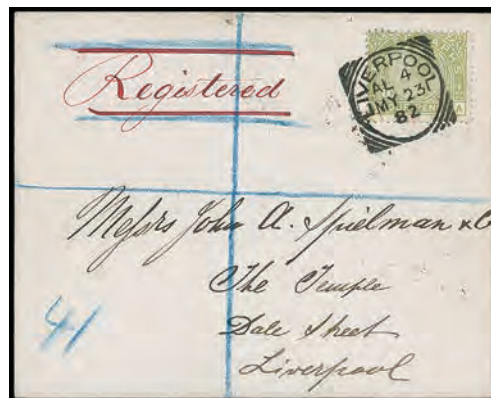 Registered
LIVERPOOL
AL 4
MY 23
82
A
Messrs John A. Spielman & Co
The Temple
Dale Street
Liverpool
41